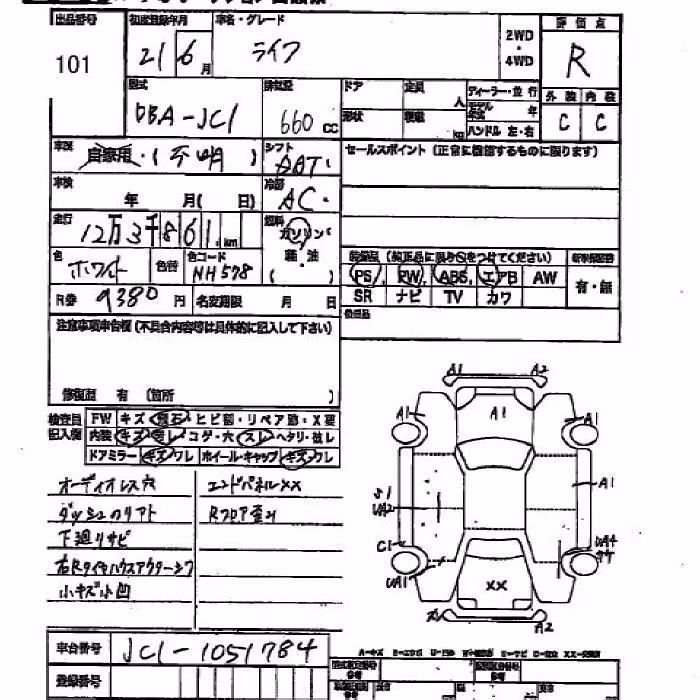 出品番号 初度登録年月 車名・グレード 評価点
101 21 6月 ライフ 2WD・4WD R
型式 排気量 ドア 定員 人 ディーラー・並行 外装 内装
DBA-JC1 660cc 形状 積載 kg モデル年式 年 C C
ハンドル 左・右
車歴 自家用・(不明) シフト AAT セールスポイント(正常に機能するものに限ります)
車検 年 月( 日) 冷房 AC
走行 12万3千861km 燃料 ガソリン
色 ホワイト 色替 色コード NH578 軽・油 ( )
装備品(純正品に限り○をつけてください) 新車保証書
PS PW ABS エアB AW 有・無
SR ナビ TV カワ
R券 9380円 名変期限 月 日
後日品
注意事項申告欄(不具合内容等は具体的に記入して下さい)
修復歴 有(箇所
検査員記入欄 FW キズ・飛石・ヒビ割・リペア跡・X要
内装 キズ・汚レ・コゲ・穴・スレ・ヘタリ・破レ
ドアミラー キズ・ワレ ホイール・キャップ キズ・ワレ
オーディオレス穴 エンドパネルXX
ダッシュのリアト Rフロア歪み
下廻りサビ
右Rタイヤハウスアウターシワ
小キズ小凹
A1 A2
A1 A1 A1
A1
UA2
C1
UA1 UA4
XX
A2
車台番号 JC1-1051784
登録番号